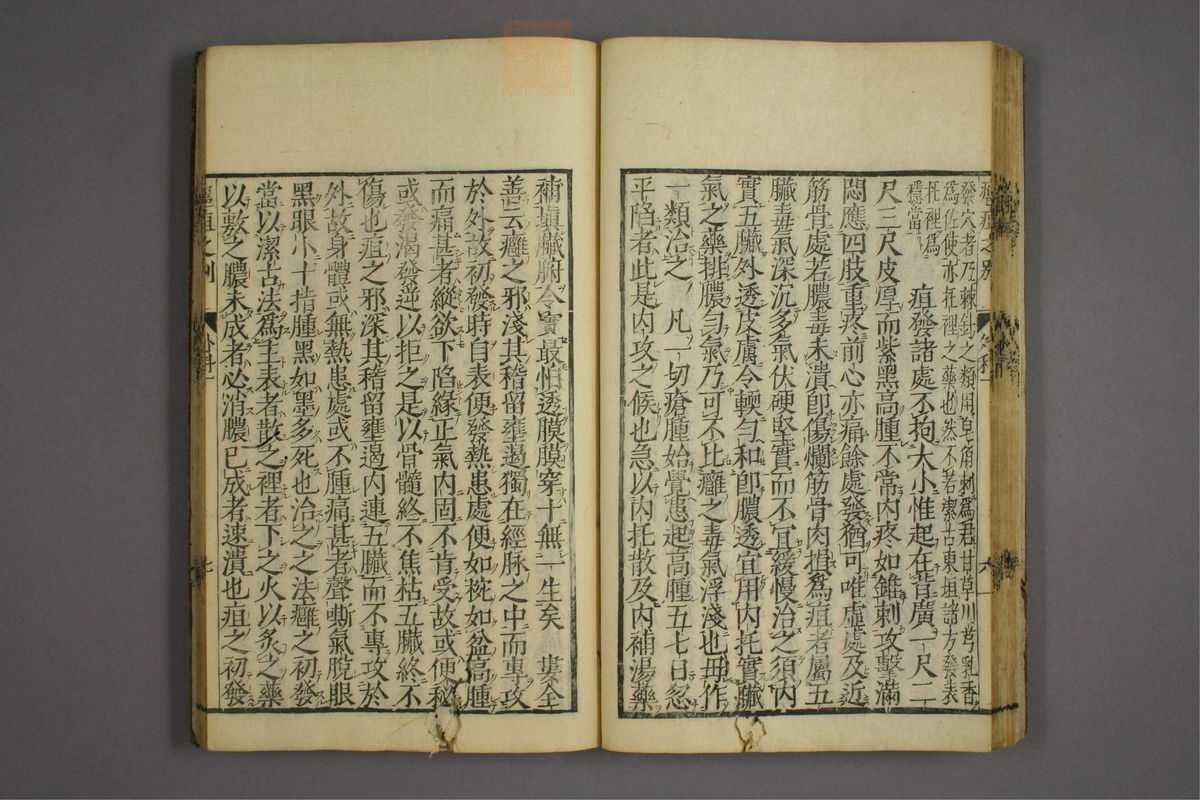 發穴者乃棘針之類用皂角刺爲君甘草川芎乳香
爲佐使亦托裡之藥也然不若潔古東垣諸方發表
托裡爲
穩當
疽發諸處不拘大小惟起在背廣一尺二
尺三尺皮厚而紫黑高腫不常内疼如錐刺攻擊滿
悶應四肢重疼前心亦痛餘處發猶可唯虛處及近
筋骨處若膿毒未潰卽傷爛筋骨肉損爲疽者屬五
臟毒氣深沉多氣伏硬堅實而不宜緩慢治之須内
實五臟外透皮膚令輭勻和卽膿透宜用内托實臟
氣之藥排膿勻氣乃可不比癰之毒氣浮淺也毋作
一類治之 凡一切瘡腫始覺患起高腫五七日忽
平陷者此是内攻之候也急以内托散及内補湯藥
補塡臟腑令實最怕透膜膜穿十無一生矣 婁全
善云癰之邪淺其稽留壅遏獨在經脉之中而專攻
於外故初發時自表便發熱患處便如椀如盆高腫
而痛甚者縱欲下陷緣正氣内固不肯受故或便秘
或發渴發逆以拒之是以骨髓終不焦枯五臟終不
傷也疽之邪深其稽留壅遏内連五臟而不專攻於
外故身體或無熱患處或不腫痛甚者聲嘶氣脫眼
黑眼小十指腫黑如墨多死也治之之法癰之初發
當以潔古法爲主表者散之裡者下之火以炙之藥
以敷之膿未成者必消膿已成者速潰也疽之初發
癰疽之別
七